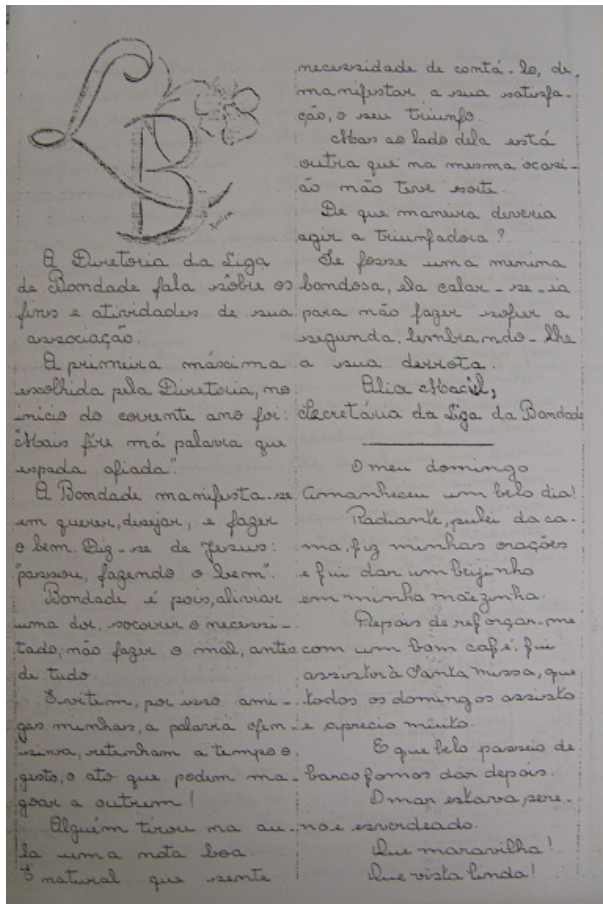 LB
A Diretoria da Liga
de Bondade fala sôbre os
fins e atividades de sua
associação.
A primeira máxima
escolhida pela Diretoria, no
início do corrente ano foi:
"Mais fire má palavra que
espada afiada".
A Bondade manifesta-se
em querer, desejar, e fazer
o bem. Diz-se de Jesus:
"passou, fazendo o bem".
Bondade é pois, aliviar
uma dor, socorrer o necessi-
tado, não fazer o mal, antes
de tudo
Evitem, por isso ami-
gas minhas, a palavra ofen-
siva, retenham a tempo o
gesto, o ato que podem ma-
goar a outrem!
Alguém tirou na au-
la uma nota boa
É natural que sente
necessidade de contá-lo, de
manifestar a sua satisfa-
ção, o seu triunfo.
Mas ao lado dela está
outra que na mesma ocasi-
ão não teve sorte.
De que maneira deveria
agir a triunfadora?
Se fosse uma menina
bondosa, ela calar-se-ia
para não fazer sofrer a
segunda, lembrando-lhe
a sua derrota.
Alice Maciel,
Secretária da Liga da Bondade
O meu domingo
Amanheceu um belo dia!
Radiante, pulei da ca-
ma, fiz minhas orações
e fui dar um beijinho
em minha mãezinha.
Depois de reforçar-me
com um bom café, fui
assistir à Santa Missa, que
todos os domingos assisto
e aprecio muito.
E que belo passeio de
barco fomos dar depois.
O mar estava sere-
no e esverdeado.
Que maravilha!
Que vista linda!